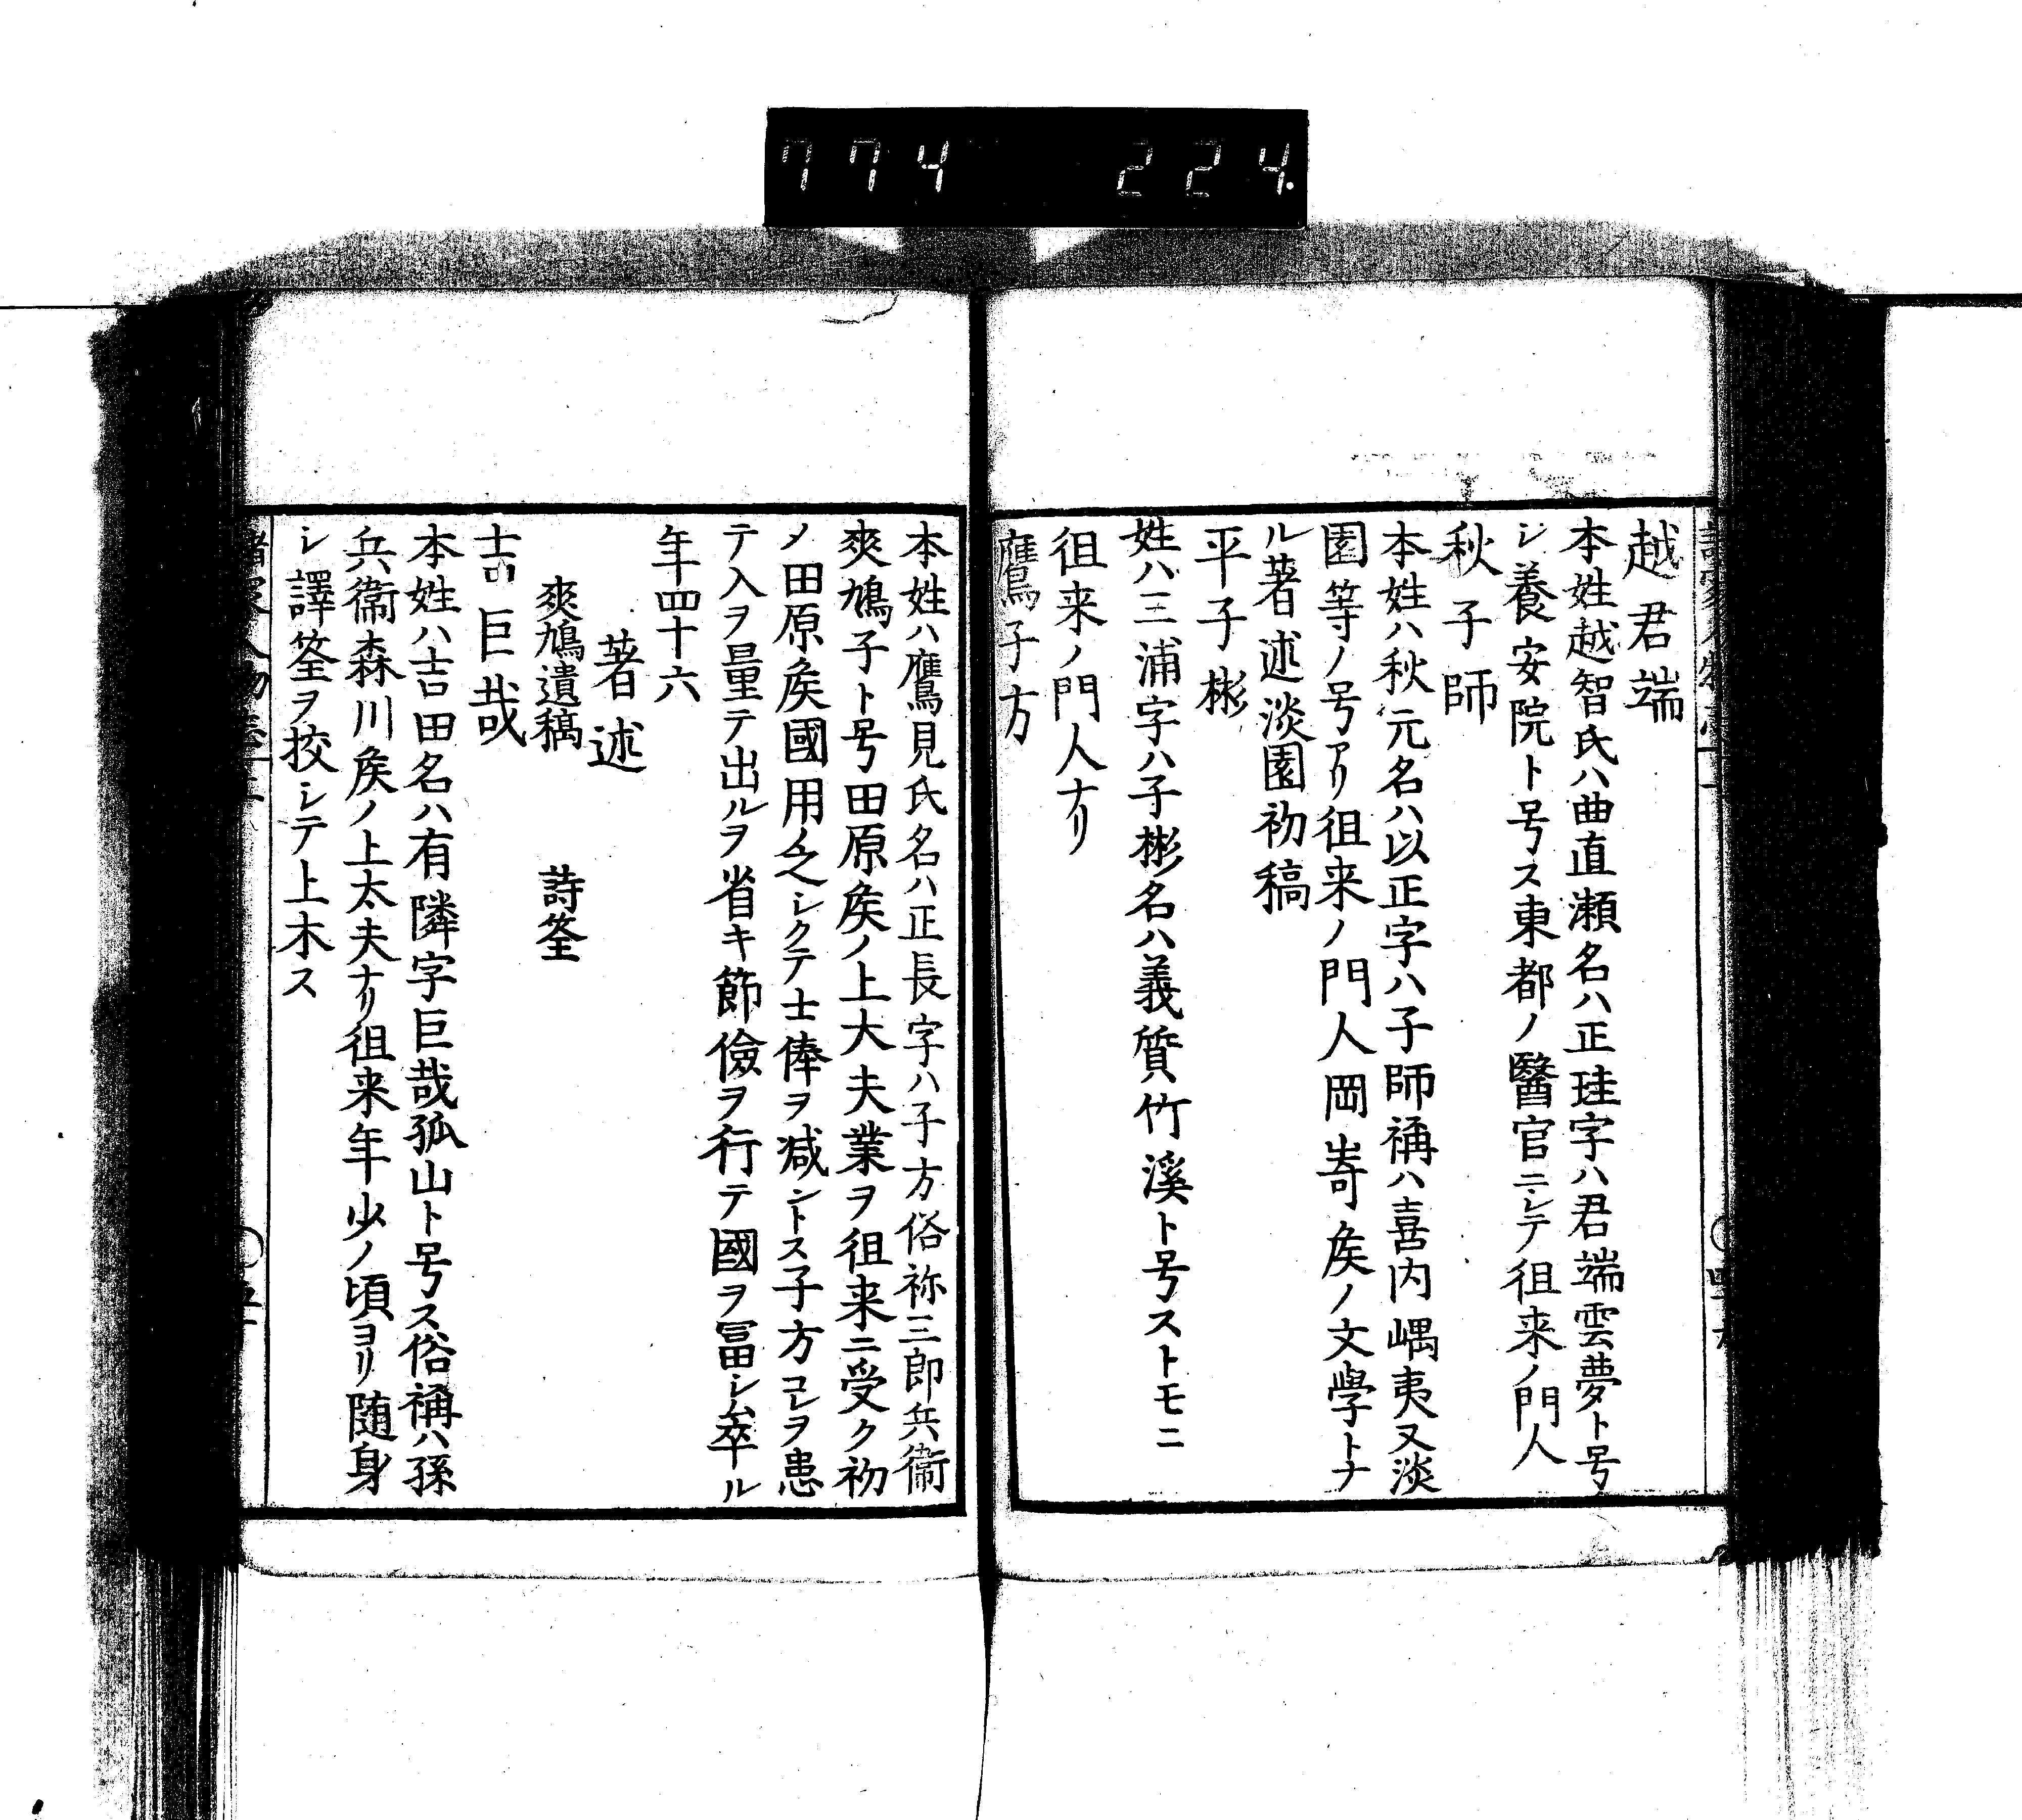 774 224.
越君端
本姓越智氏ハ曲直瀬名ハ正珪字ハ君端雲夢ト号
シ養安院ト号ス東都ノ醫官ニシテ徂来ノ門人
秋子師
本姓ハ秋元名ハ以正字ハ子師稱ハ喜内嵎夷又淡
園等ノ号アリ徂来ノ門人岡嵜矦ノ文學トナ
ル著述淡園初稿
平子彬
姓ハ三浦字ハ子彬名ハ義質竹溪ト号ストモニ
徂来ノ門人ナリ
鷹子方
本姓ハ鷹見氏名ハ正長字ハ子方俗称三郎兵衞
爽鳩子ト号田原矦ノ上大夫業ヲ徂来ニ受ク初
ノ田原矦國用乏シクテ士俸ヲ减シトス子方コレヲ患
テ入ヲ量テ出ルヲ省キ節儉ヲ行テ國ヲ冨シム卒ル
年四十六
著述
爽鳩遺稿 詩筌
吉巨哉
本姓ハ吉田名ハ有隣字巨哉孤山ト号ス俗稱ハ孫
兵衞森川矦ノ上太夫ナリ徂来年少ノ頃ヨリ随身
シ譯筌ヲ挍シテ上木ス